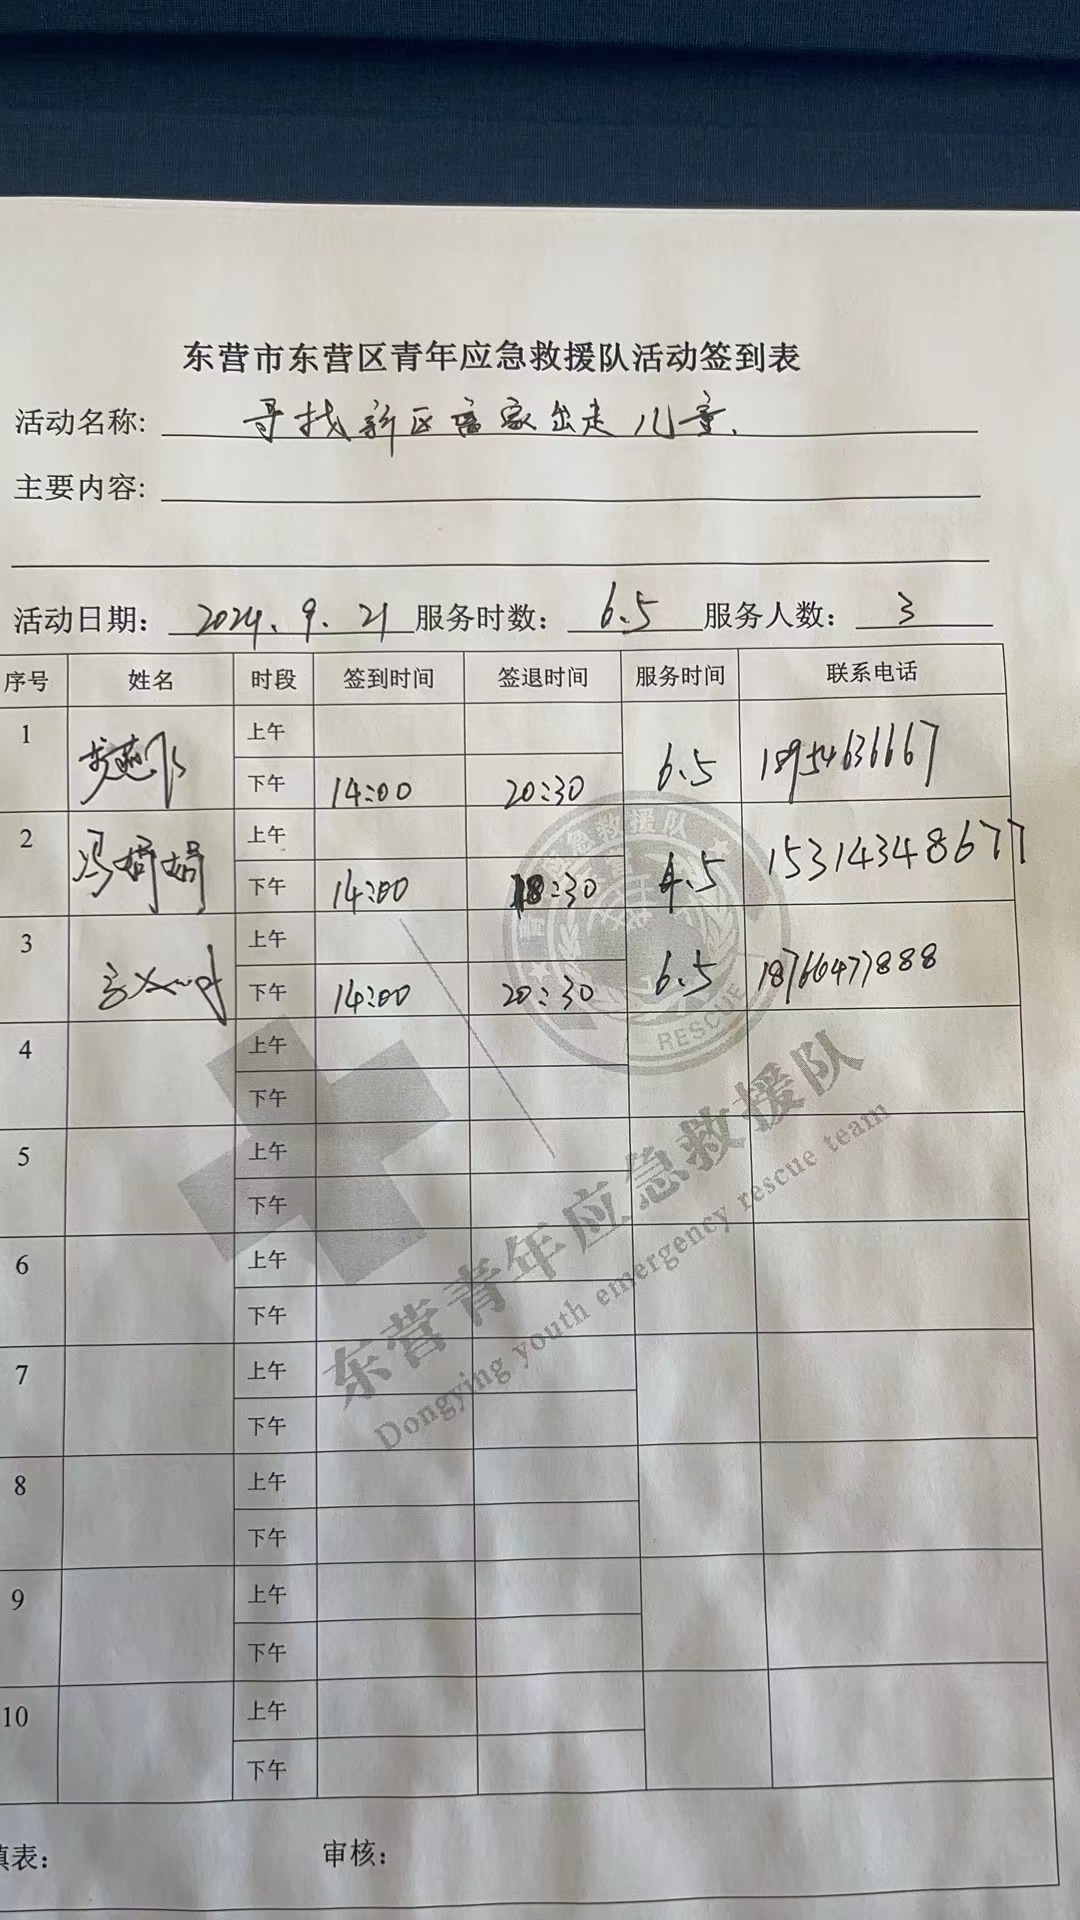 东营市东营区青年应急救援队活动签到表
活动名称: 寻找新区离家出走儿童.
主要内容:
活动日期: 2024.9.21 服务时数: 6.5 服务人数: 3
序号 姓名 时段 签到时间 签退时间 服务时间 联系电话
1 上午
下午 14:00 20:30 6.5 18954636667
2 冯娟娟 上午
下午 14:00 18:30 4.5 15314348677
3 上午
下午 14:00 20:30 6.5 18766477888
4 上午
下午
5 上午
下午
6 上午
下午
7 上午
下午
8 上午
下午
9 上午
下午
10 上午
下午
填表: 审核:
急救援队
RESCUE
东营青年应急救援队
Dongying youth emergency rescue team